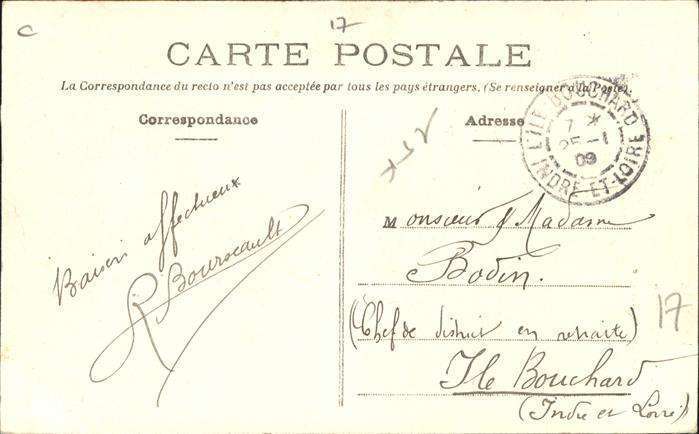 C
17
CARTE POSTALE
La Correspondance du recto n'est pas acceptée par tous les pays étrangers. (Se renseigner à la Poste).
Correspondance
Baisers affectueux
R Boursault
Adresse
L'ILE BOUCHARD
7 *
25 - 1
09
INDRE-ET-LOIRE
Monsieur & Madame
Bodin.
(Chef de district en retraite)
17
Ile Bouchard
(Indre et Loire)